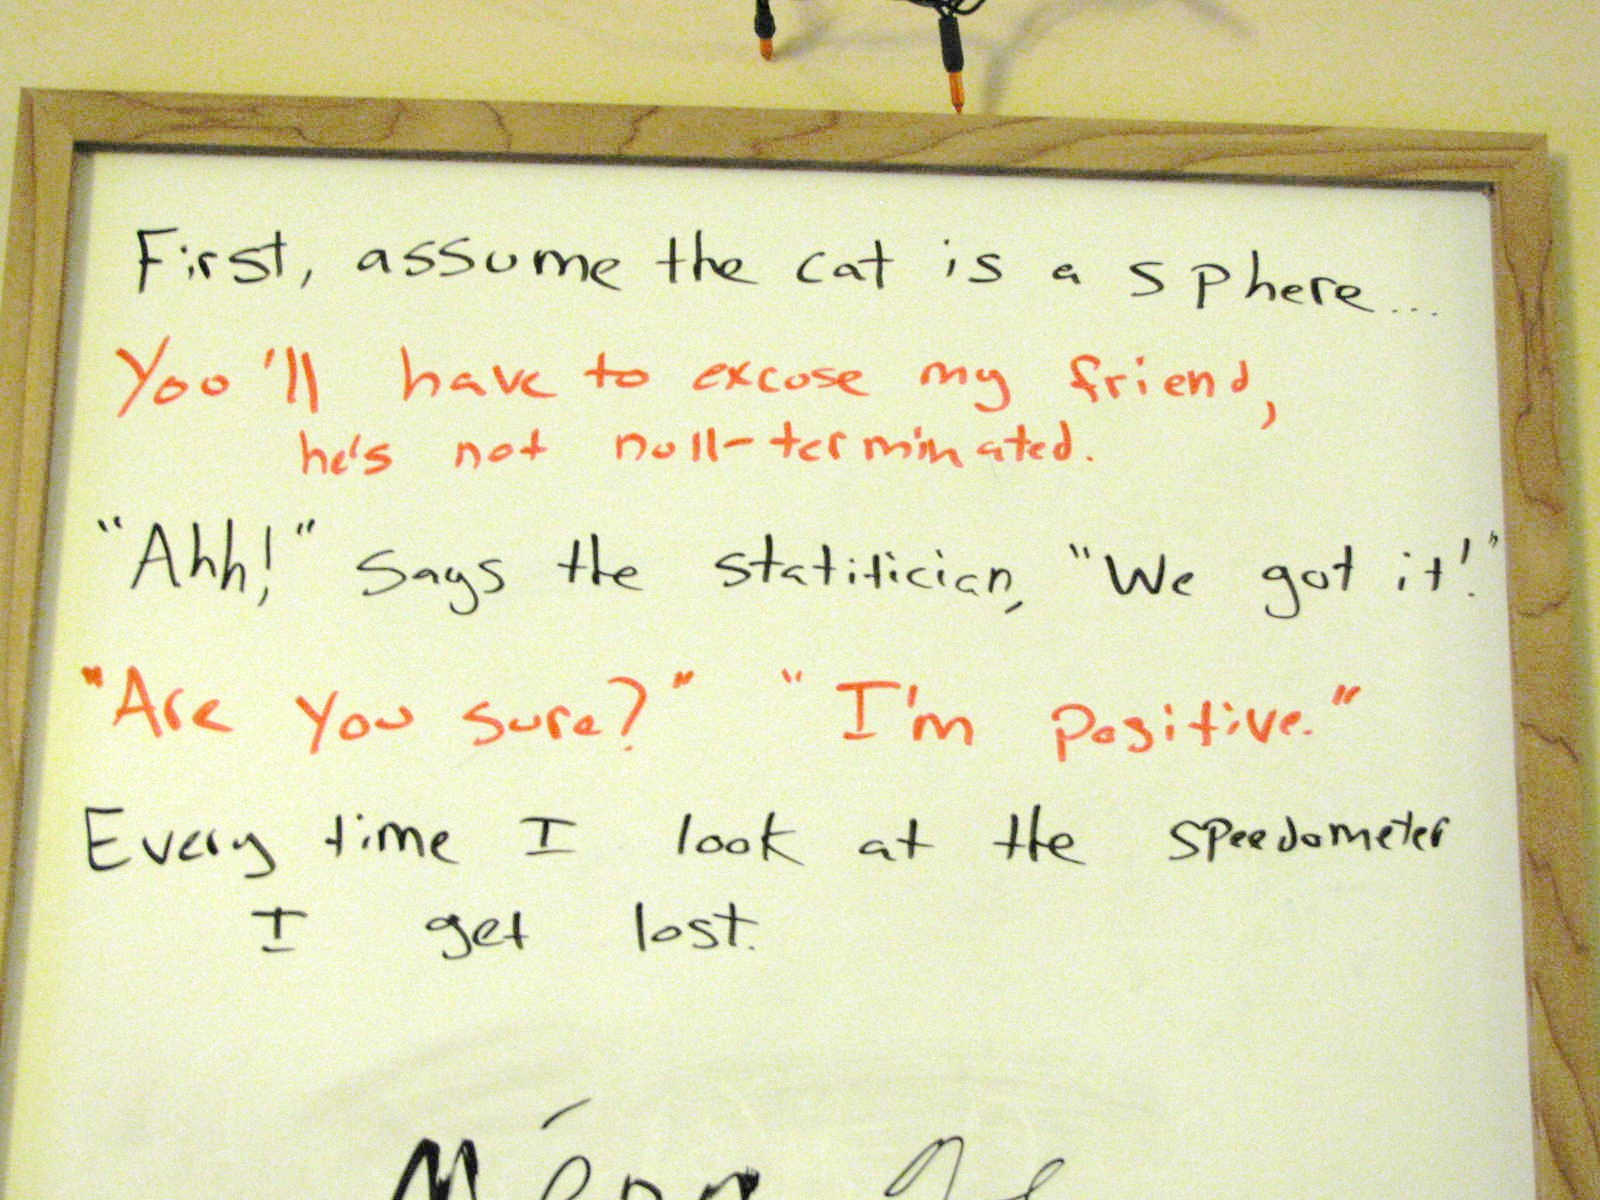 First, assume the cat is a sphere...
You'll have to excuse my friend,
he's not null-terminated.
"Ahh!" says the statitician, "We got it!"
"Are you sure?" "I'm positive."
Every time I look at the speedometer
I get lost.